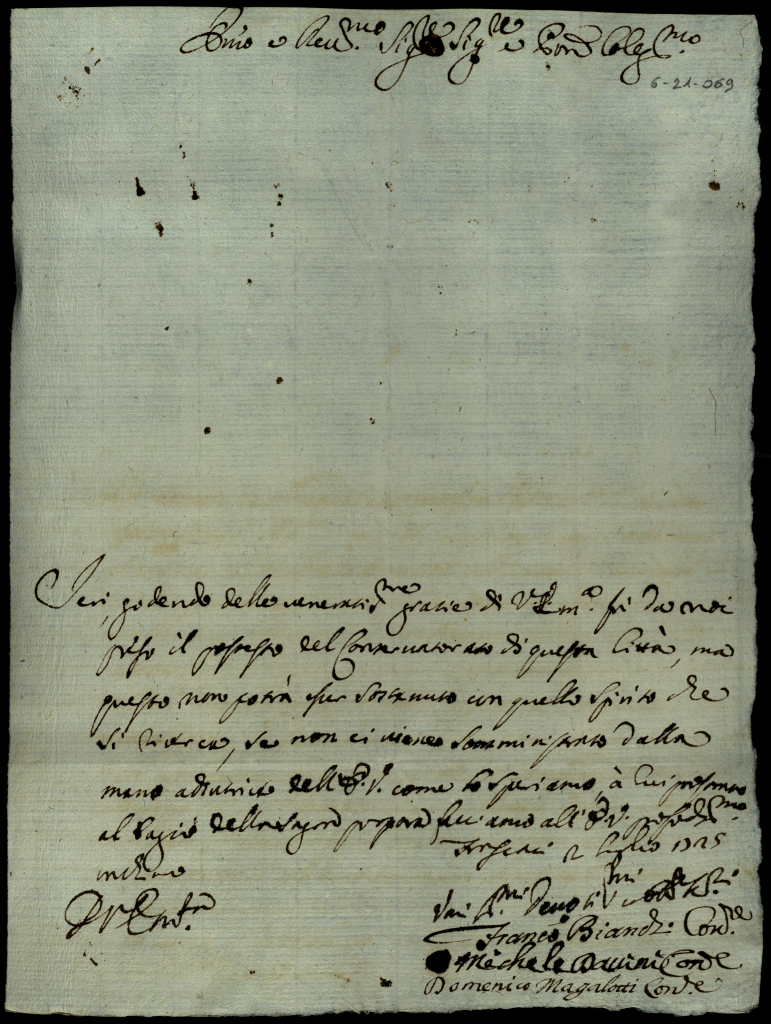 Em̃o e Reu.mo Sig.re Sig.re e Pãrõe Colẽg.mo
6-21-069
Ieri, godendo delle veneratis.me gratie di V. Em.a fù da noi
preso il possesso del Conservatorato di questa Città, ma
questo non potrà esser sostenuto con quello spirito che
si ricerca, se non ci viene somministrato dalla
mano adiutrice dell'E. V. come lo speriamo, à cui
al bagio della Sagra porpora facciamo all'E. V. profondis.mo
inchino
Frascati 2 Luglio 1725
D. V. Em.za
Franc.o Bianchi Con.re
Michele Conre
Domenico Magalotti Con.re